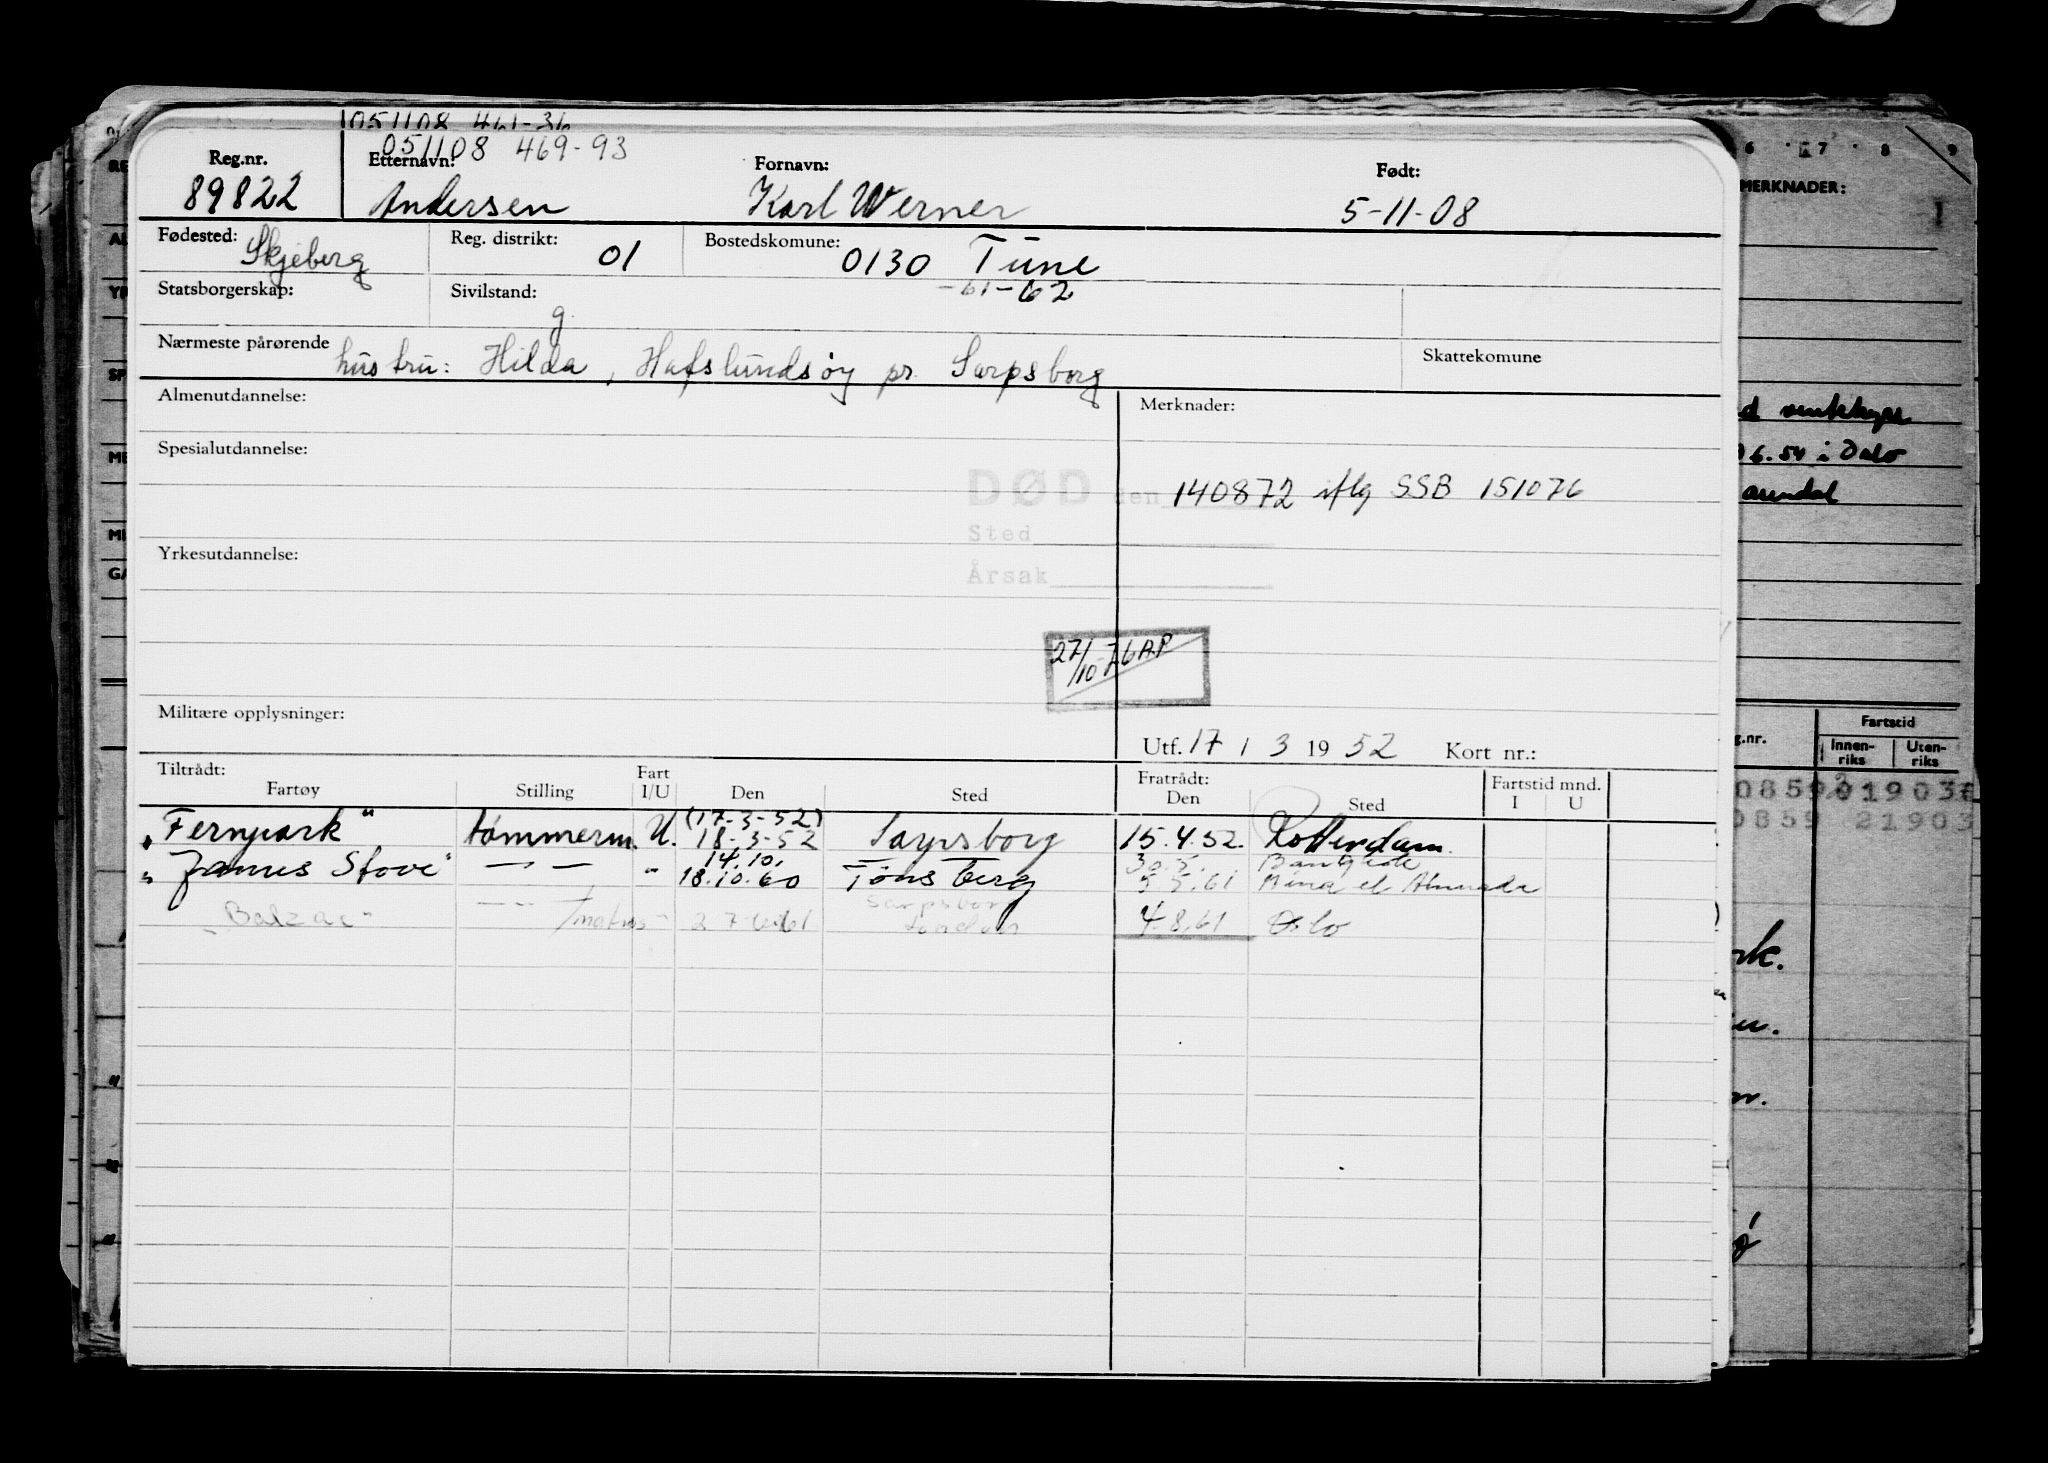 051108 461-36
051108 469-93
Reg.nr. Etternavn: Fornavn: Født:
89822 Andersen Karl Werner 5-11-08
Fødested: Skjeberg Reg. distrikt: 01 Bostedskomune: 0130 Tune
Statsborgerskap: Sivilstand: g. -61-62
Nærmeste pårørende hustru: Hilda, Hafslundsøy pr. Sarpsborg Skattekomune
Almenutdannelse: Merknader:
Spesialutdannelse:
DØD den 140872 iflg SSB 151076
Sted
Årsak
Yrkesutdannelse:
27/10-76 AP
Militære opplysninger:
Utf. 17 / 3 1952 Kort nr.:
Tiltrådt: Fart Fratrådt: Fartstid mnd.
Fartøy Stilling I/U Den Sted Den Sted I U
(17-3-52)
"Fernpark" tømmerm. U. 18-3-52 Sarpsborg 15.4.52. Rotterdam
14.10. 30.5.
"James Stove" — — " 18.10.60 Tønsberg 5.5.61 Mina el
Sarpsborg
"Balzac" — " — /matros " 61 London 4.8.61 Oslo
6 7 8 9
MERKNADER:
1
i Oslo
arendal
g.nr. Fartstid
Innen-riks Uten-riks